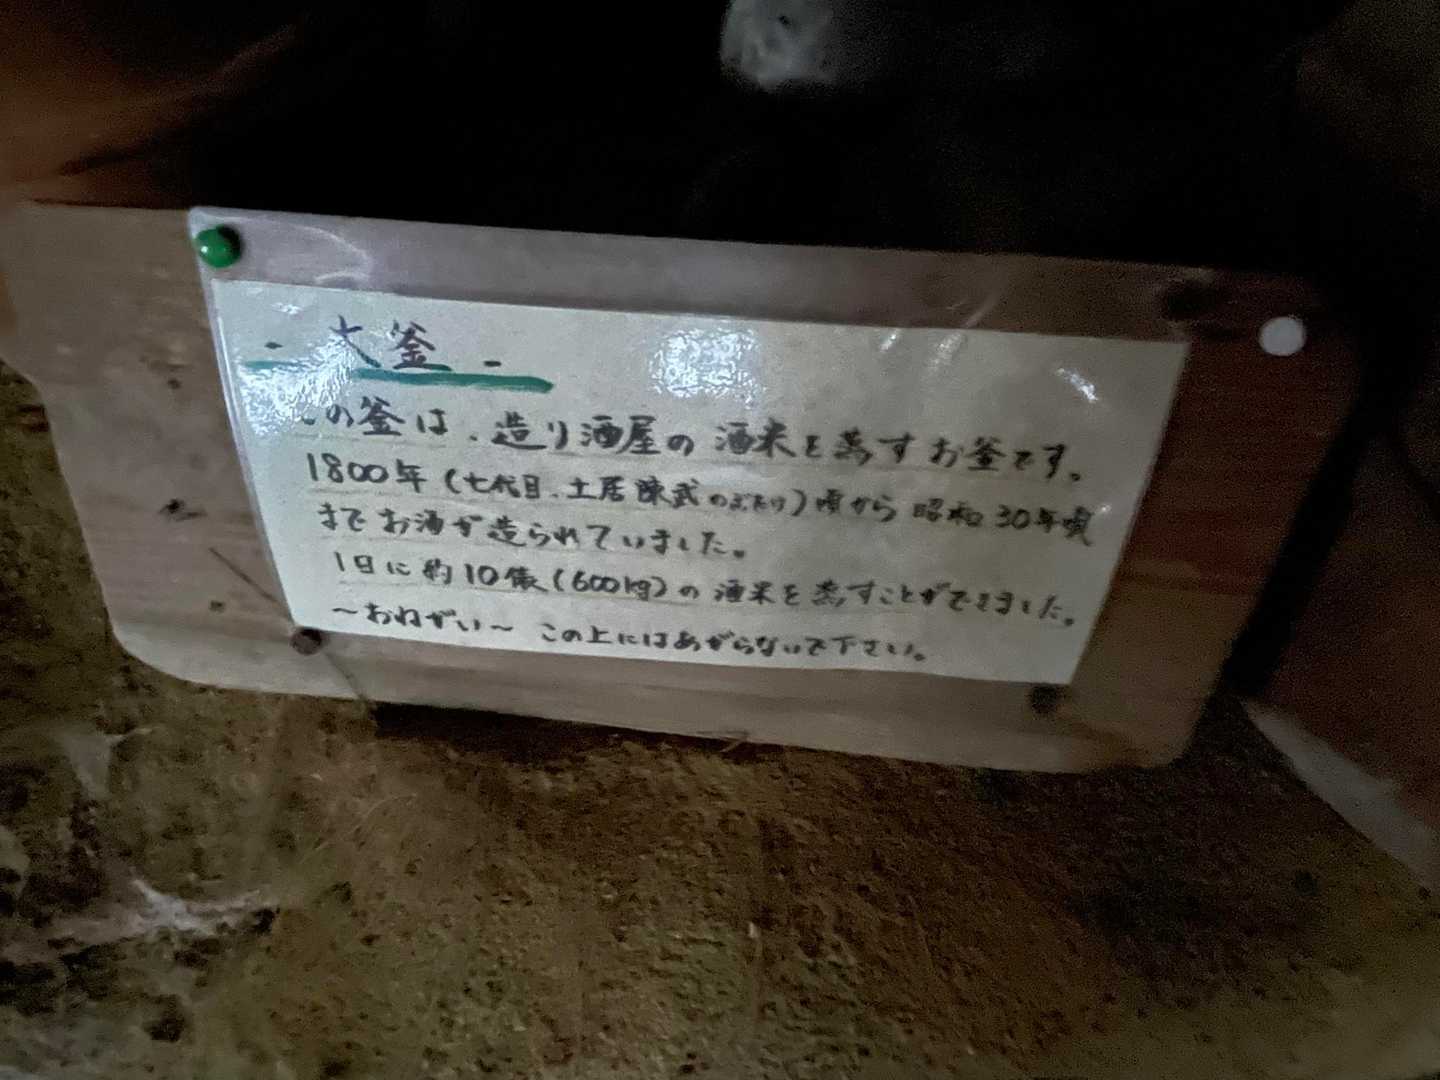 - 大釜 -
この釜は、造り酒屋の酒米を蒸すお釜です。
1800年(七代目、土居陳武のぶたけ)頃から昭和30年頃
までお酒が造られていました。
1日に約10俵(600kg)の酒米を蒸すことができました。
～おねがい～ この上にはあがらないで下さい。